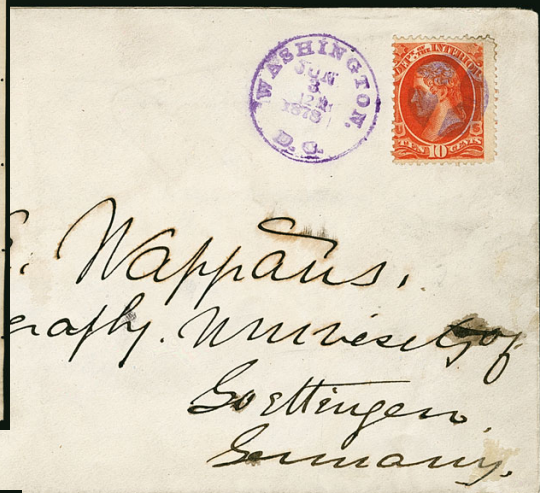 WASHINGTON.
JUN
3
1878
D.C.
DEP. OF THE INTERIOR
U S
TEN 10 CENTS
. Wappäus.
graphy. Univesity of
Goettingen.
Germany.